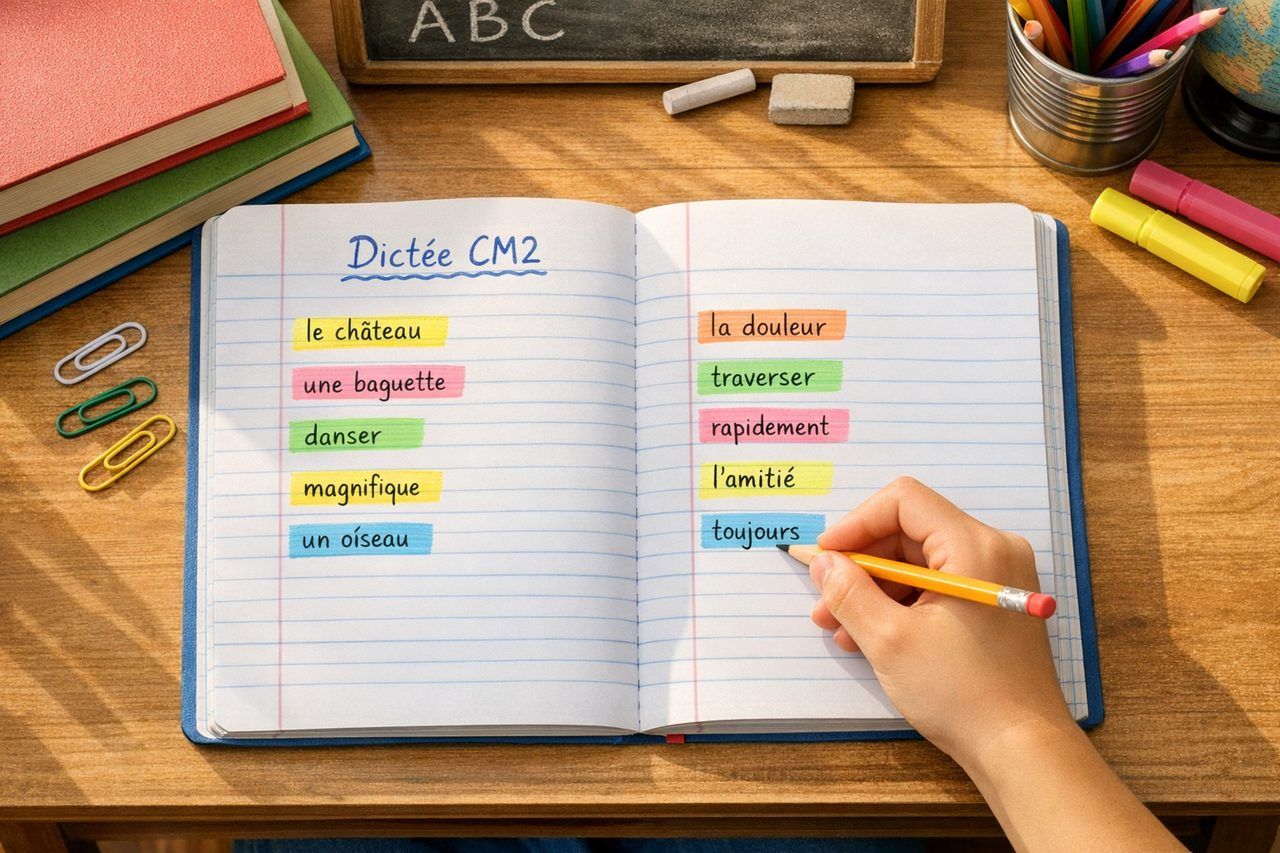 ABC
Dictée CM2
le château
une baguette
danser
magnifique
un oíseau
la douleur
traverser
rapidement
l'amitié
toujours